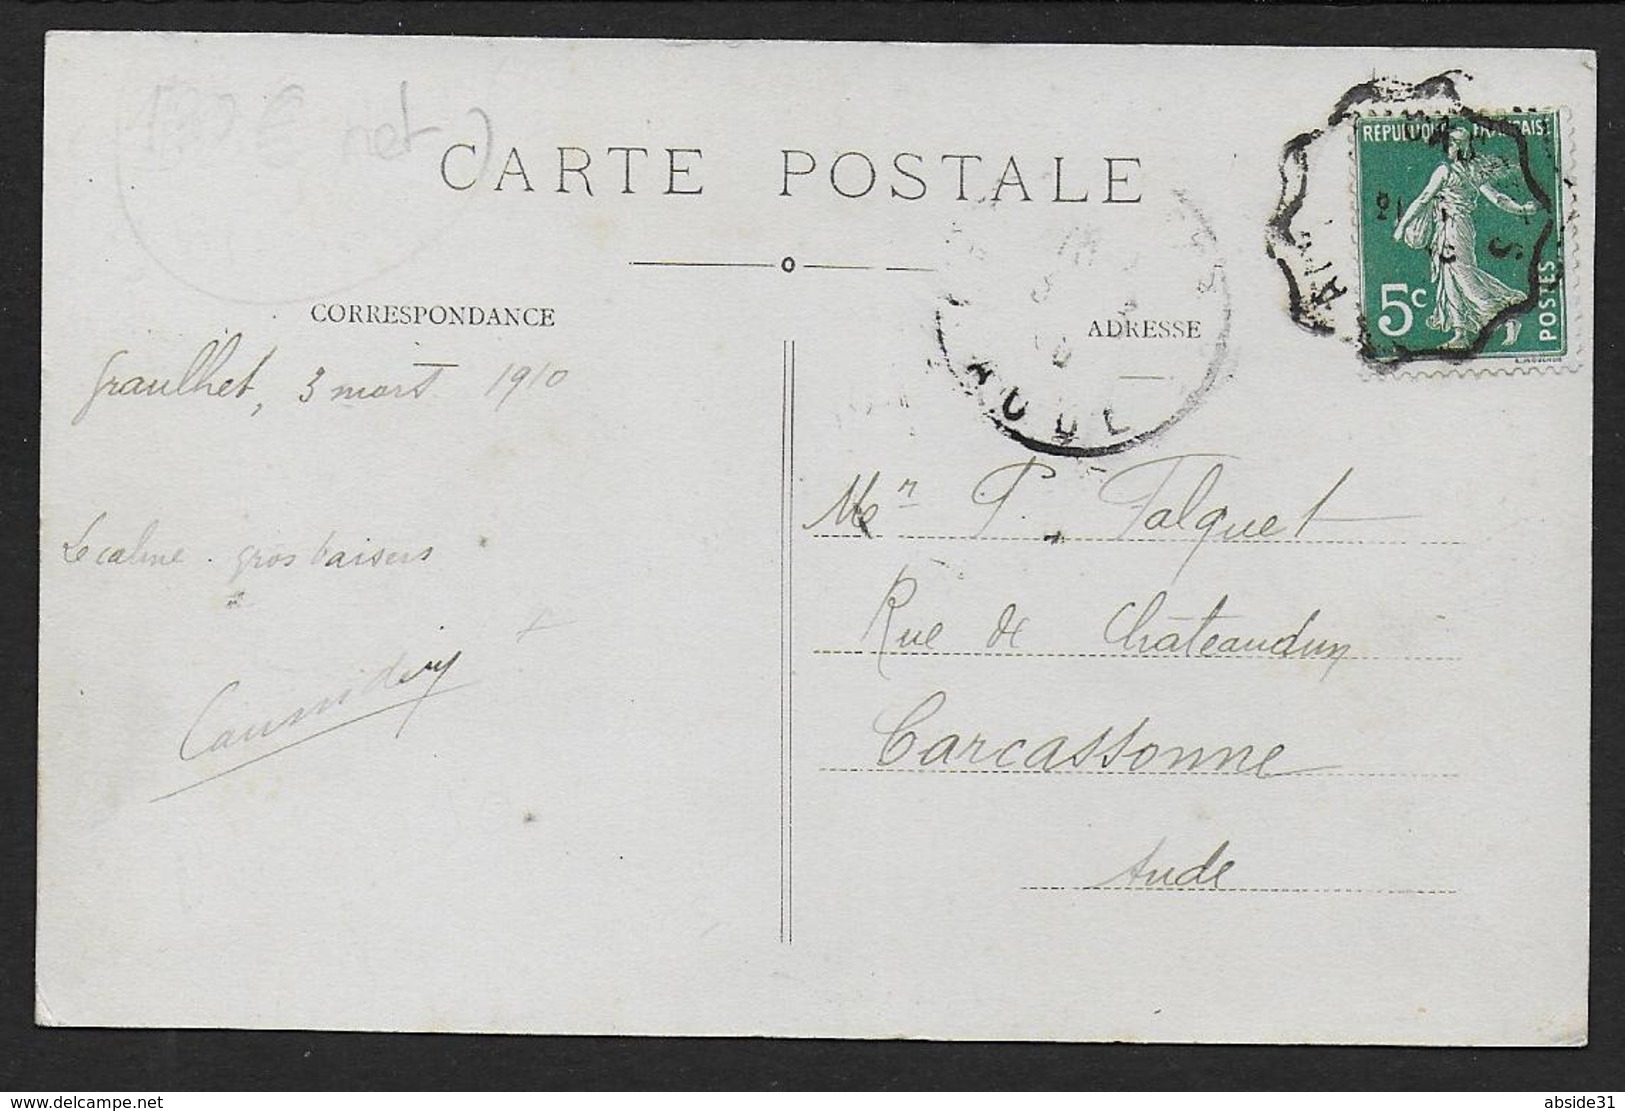 net
CARTE POSTALE
CORRESPONDANCE
ADRESSE
Graulhet, 3 mars 1910
Le calme. gros baisers
Mr P. Falquet
Rue de Chateaudun
Carcassonne
Aude
AUDE
RÉPUBLIQUE FRANÇAISE
5c
POSTES
www.delcampe.net
abside31